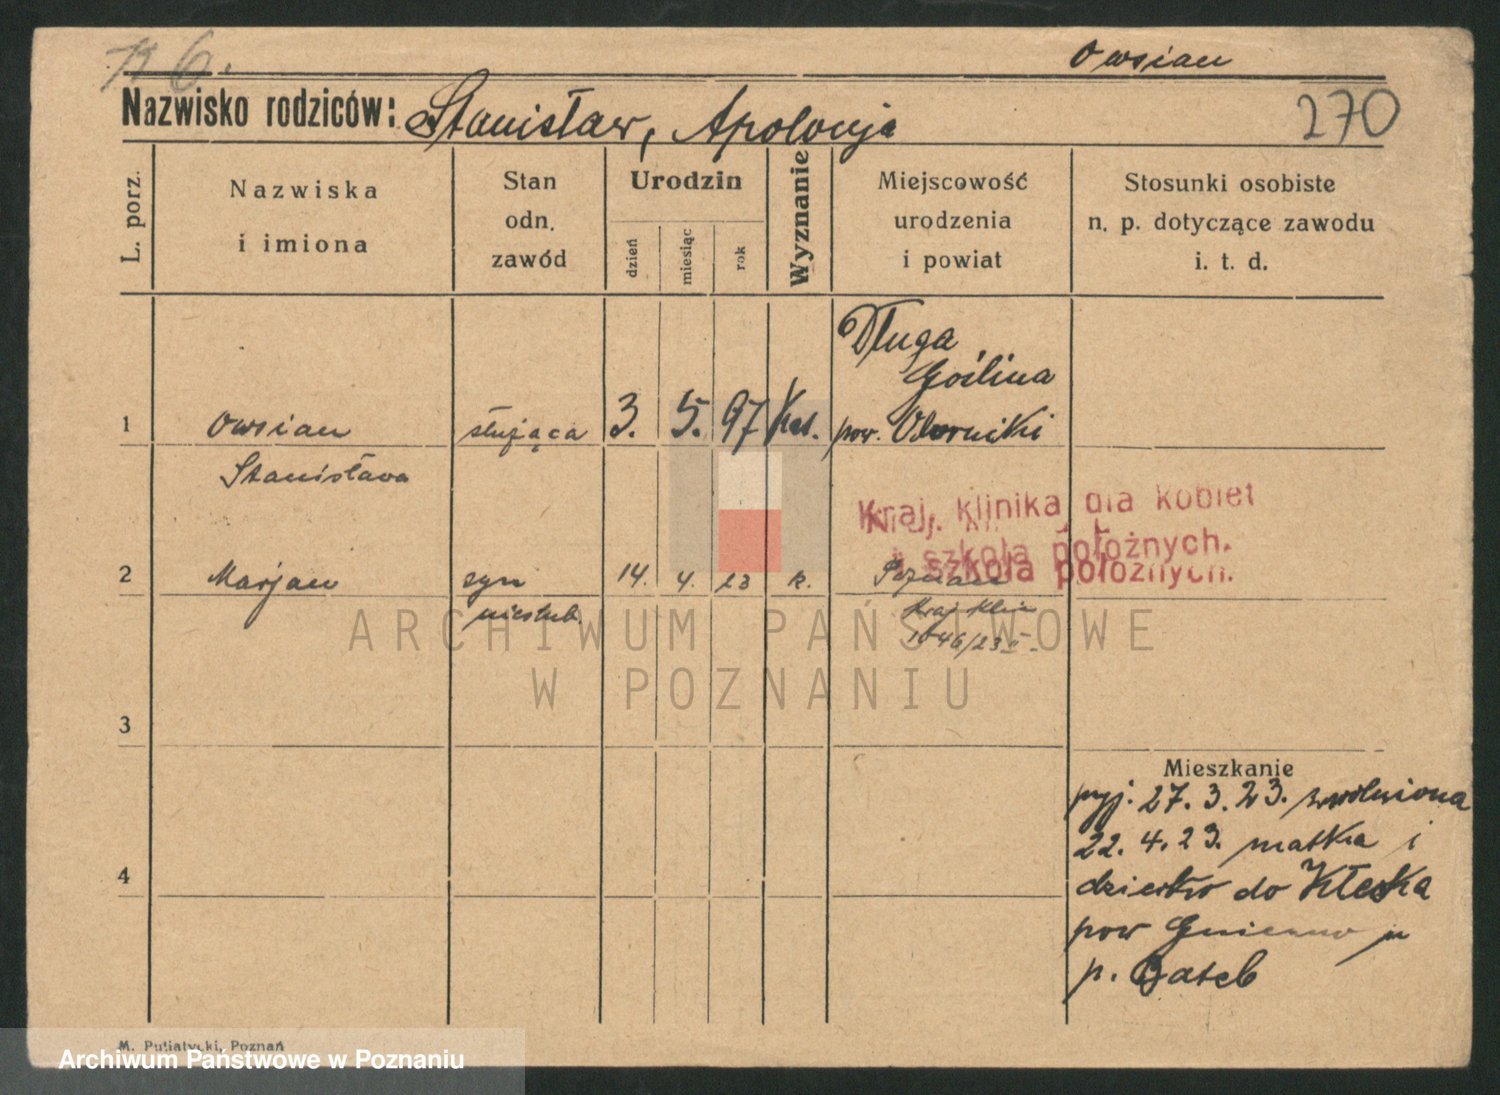 Owsian
Nazwisko rodziców: Stanisław, Apolonja
270
L. porz.
Nazwiska
i imiona
Stan
odn.
zawód
Urodzin
dzień
miesiąc
rok
Wyznanie
Miejscowość
urodzenia
i powiat
Stosunki osobiste
n. p. dotyczące zawodu
i. t. d.
1
Owsian
Stanisława
służąca
3. 5. 97
Kat.
Długa
Goślina
pow. Oborniki
Kraj. klinika dla kobiet
i szkoła położnych.
i szkoła położnych.
2
Marjan
syn
nieślub.
14. 4. 23
k.
Poznań
Kraj Klin
1046/23 II
3
4
Mieszkanie
przyj. 27. 3. 23. zwolniona
22. 4. 23. matka i
dziecko do Kłecka
pow Gniezno u
p.
M. Putiatycki, Poznań
ARCHIWUM PAŃSTWOWE
W POZNANIU
Archiwum Państwowe w Poznaniu